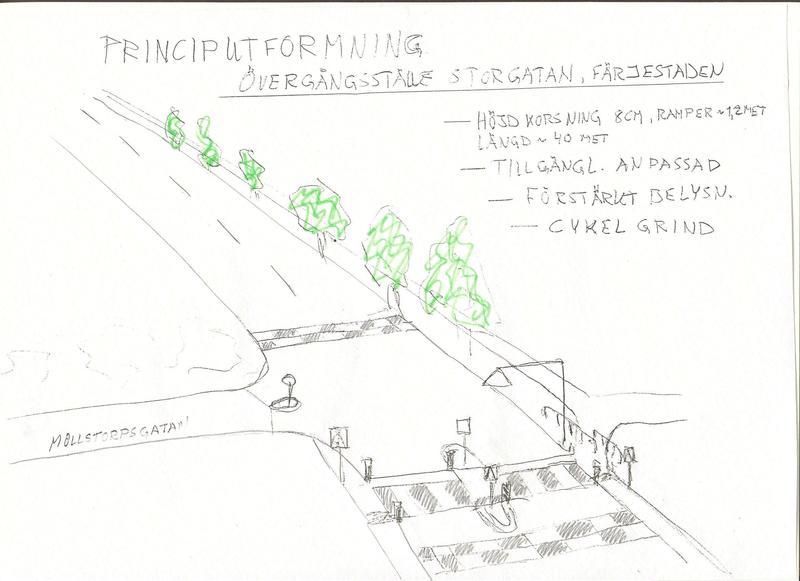 PRINCIPUTFORMNING
ÖVERGÅNGSSTÄLLE STORGATAN, FÄRJESTADEN
— HÖJD KORSNING 8CM, RAMPER ~1,2 MET
LÄNGD ~ 40 MET
— TILLGÄNGL. ANPASSAD
— FÖRSTÄRKT BELYSN.
— CYKEL GRIND
MÖLLSTORPSGATAN